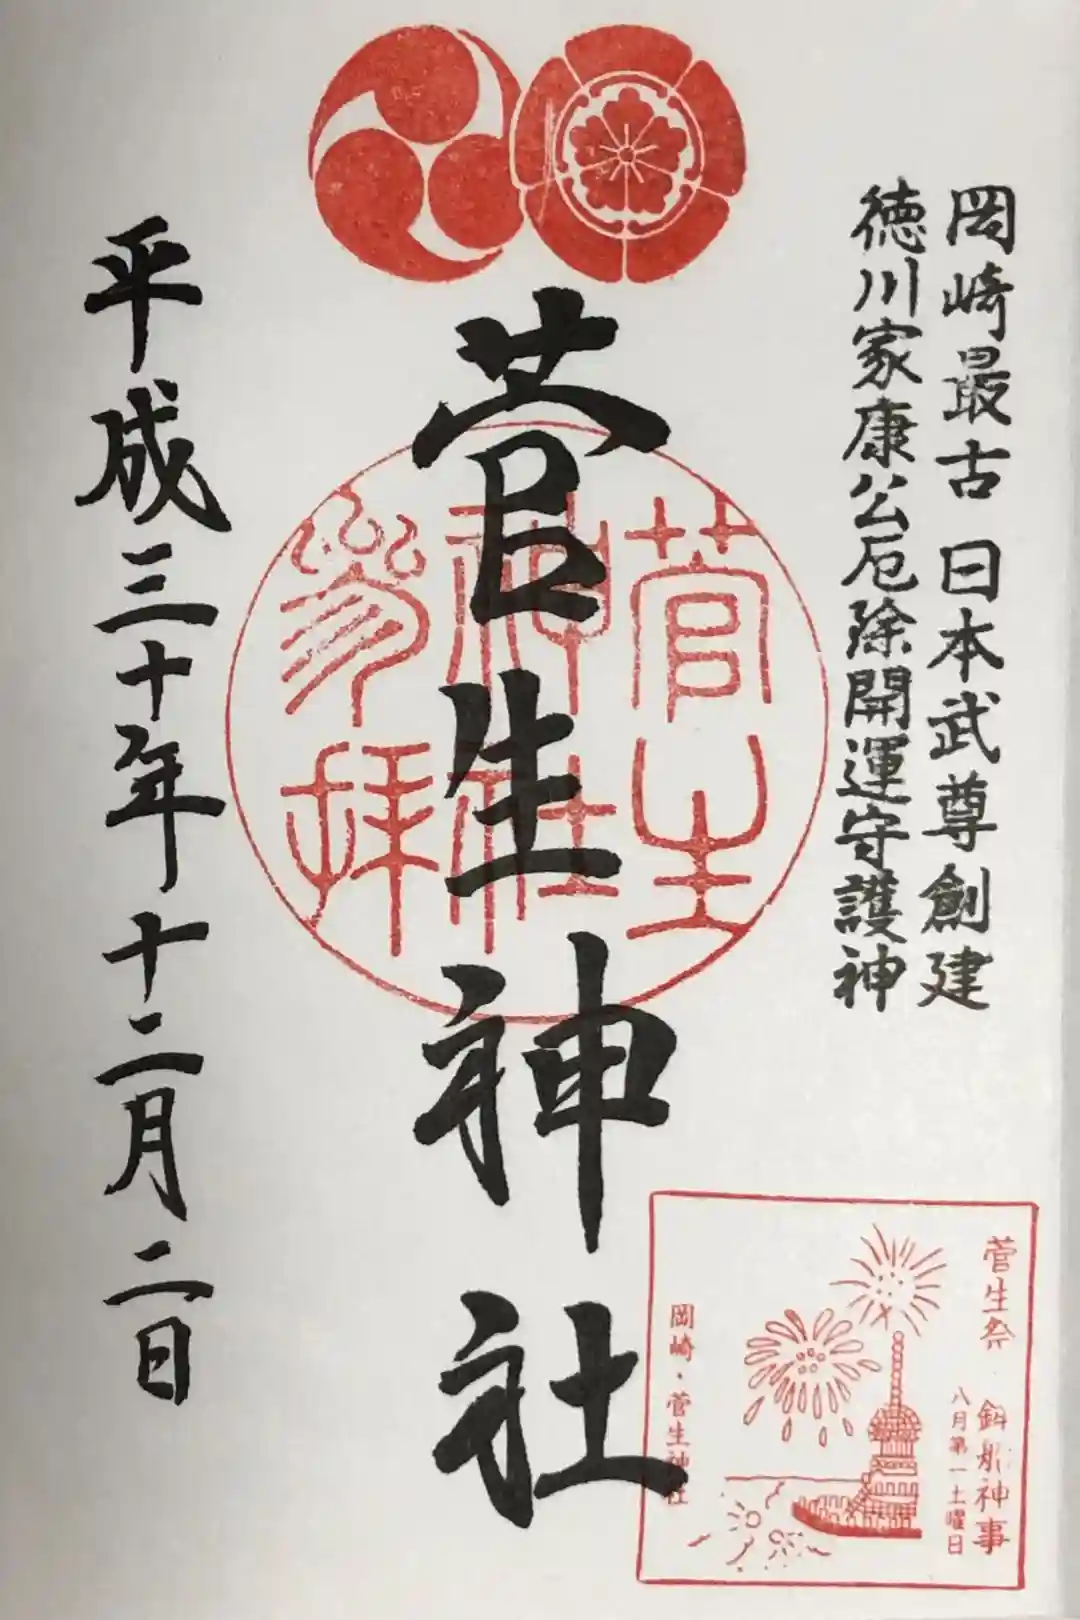 岡崎最古 日本武尊創建
徳川家康公厄除開運守護神
菅生神社
菅生
神社
参拝
平成三十年十二月二日
菅生祭 鉾船神事
八月第一土曜日
岡崎・菅生神社